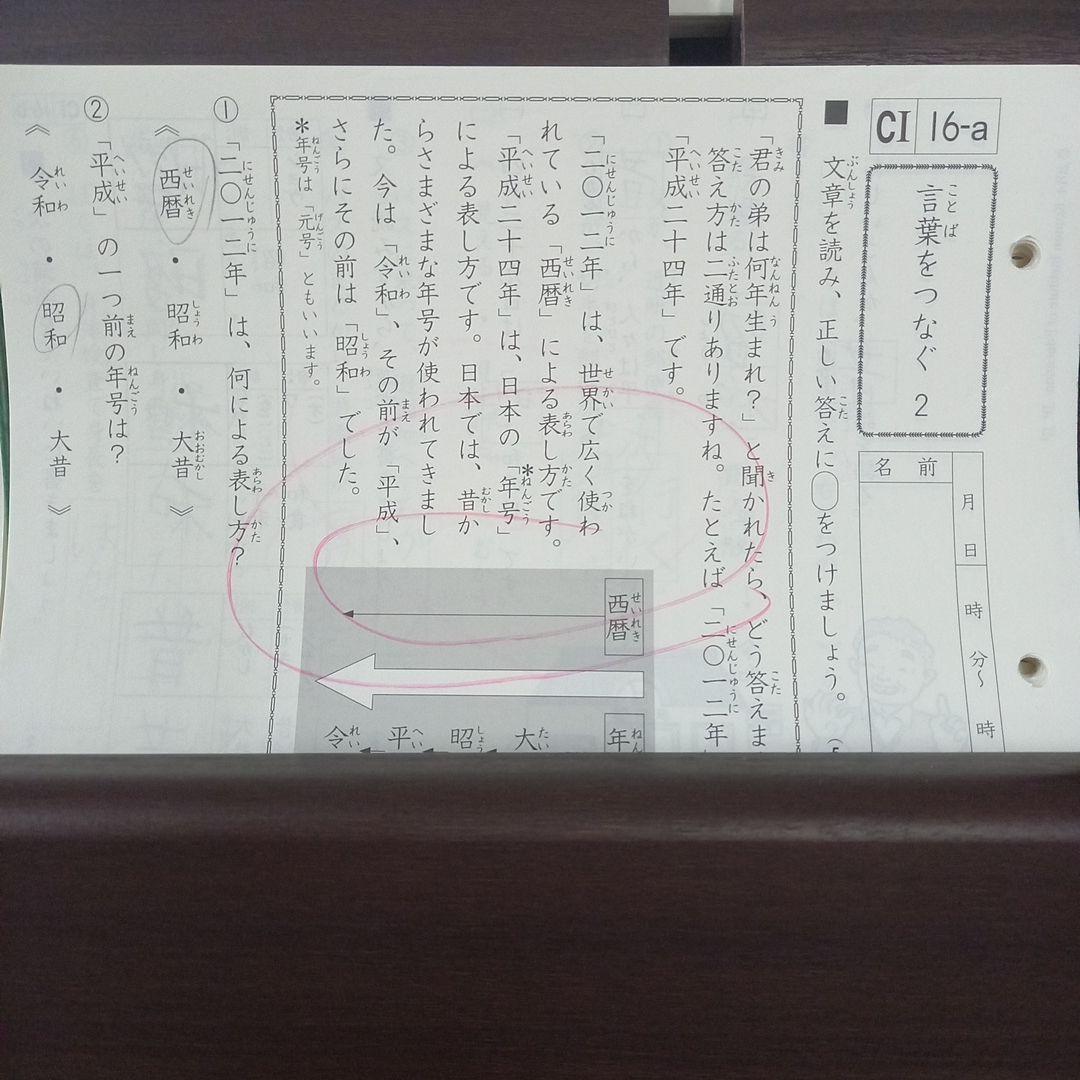 CI 16-a
言葉をつなぐ 2
月 日 時 分〜 時
名前
■ 文章を読み、正しい答えに○をつけましょう。
「君の弟は何年生まれ?」と聞かれたら、どう答えま
答え方は二通りありますね。たとえば「二〇一二年
「平成二十四年」です。
「二〇一二年」は、世界で広く使わ
れている「西暦」による表し方です。
「平成二十四年」は、日本の「*年号」
による表し方です。日本では、昔か
らさまざまな年号が使われてきまし
た。今は「令和」、その前が「平成」、
さらにその前は「昭和」でした。
*年号は「元号」ともいいます。
西暦
年
大
昭
平
令
① 「二〇一二年」は、何による表し方?
《 西暦 ・ 昭和 ・ 大昔 》
② 「平成」の一つ前の年号は?
《 令和 ・ 昭和 ・ 大昔 》